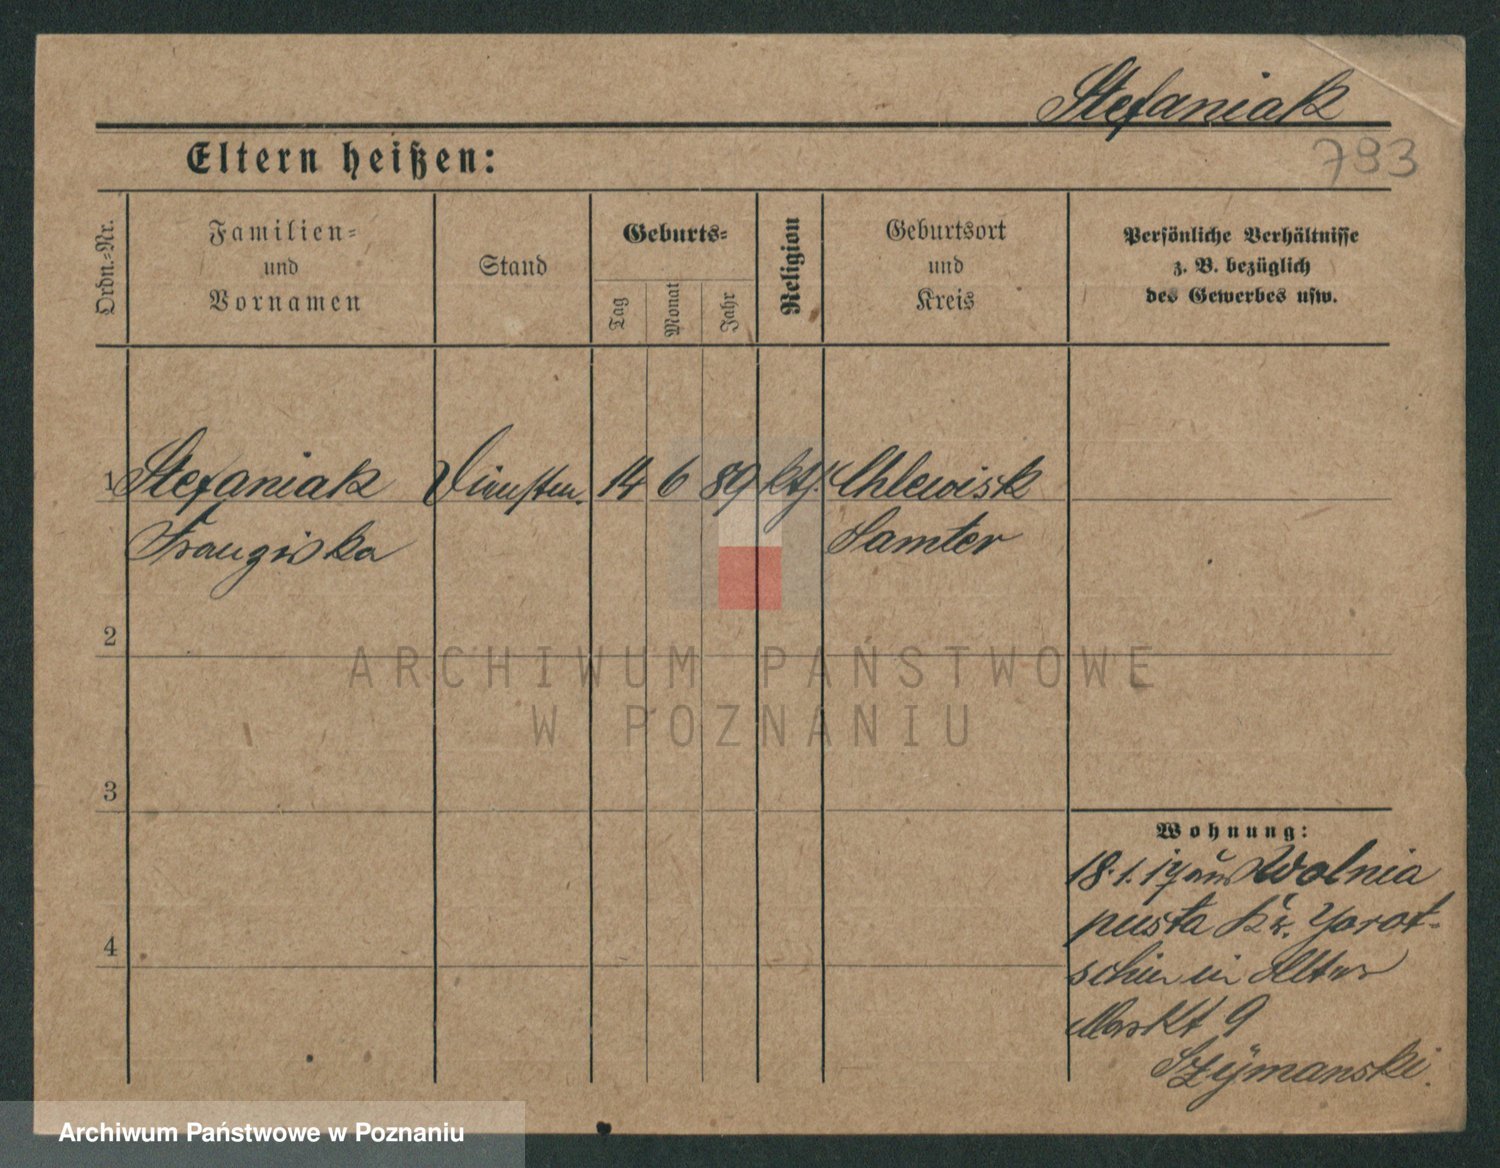 Stefaniak
793
Eltern heißen:
Ordn.=Nr.
Familien=
und
Vornamen
Stand
Geburts=
Tag
Monat
Jahr
Religion
Geburtsort
und
Kreis
Persönliche Verhältnisse
z. B. bezüglich
des Gewerbes usw.
1 Stefaniak 14 6 89 kth. Chlewisk
Franziska Samter
2
ARCHIWUM PAŃSTWOWE
W POZNANIU
3
Wohnung:
18.1.17 aus Wolnia
pusta Kr. Jarot-
4
schin in Alter
Markt 9
Szymanski.
Archiwum Państwowe w Poznaniu